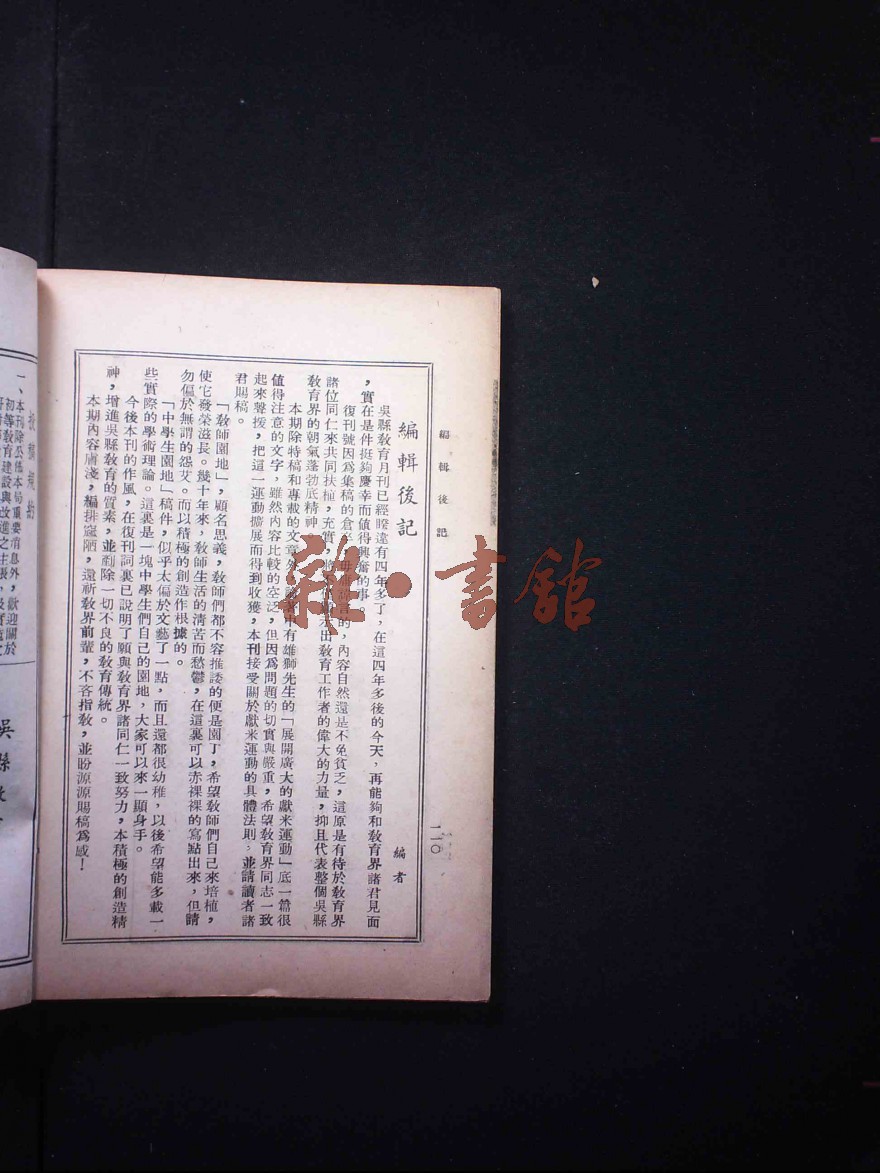 編輯後記
一一〇
編輯後記
編者
吳縣教育月刊已經暌違有四年多了，在這四年多後的今天，再能夠和教育界諸君見面
，實在是件挺夠慶幸而值得興奮的事。
復刊號因為集稿的倉卒，毋庸諱言的，內容自然還是不免貧乏，這原是有待於教育界
諸位同仁來共同扶植，充實，將不僅顯示出教育工作者的偉大的力量，抑且代表整個吳縣
教育界的朝氣蓬勃底精神。
本期除特稿和專載的文章外，論著中有雄獅先生的「展開廣大的獻米運動」底一篇很
值得注意的文字，雖然內容比較的空泛，但因為問題的切實與嚴重，希望教育界同志一致
起來聲援，把這一運動擴展而得到收獲，本刊接受關於獻米運動的具體法則，並請讀者諸
君賜稿。
「教師園地」，顧名思義，教師們都不容推諉的便是園丁，希望教師們自己來培植，
使它發榮滋長。幾十年來，教師生活的清苦而愁鬱，在這裏可以赤裸裸的寫點出來，但請
勿偏於無謂的怨艾。而以積極的創造作根據的。
「中學生園地」稿件，似乎太偏於文藝了一點，而且還都很幼稚，以後希望能多載一
些實際的學術理論。這裏是一塊中學生們自己的園地，大家可以來一顯身手。
今後本刊的作風，在復刊詞裏已說明了願與教育界諸同仁一致努力，本積極的創造精
神，增進吳縣教育的質素，並剷除一切不良的教育傳統。
本期內容膚淺，編排寔陋，還祈教界前輩，不吝指教，並盼源源賜稿為感！
投稿規約
一、本刊除公佈本局重要消息外，歡迎關於
初等教育建設與改進之主張，
吳縣教
雜·書館